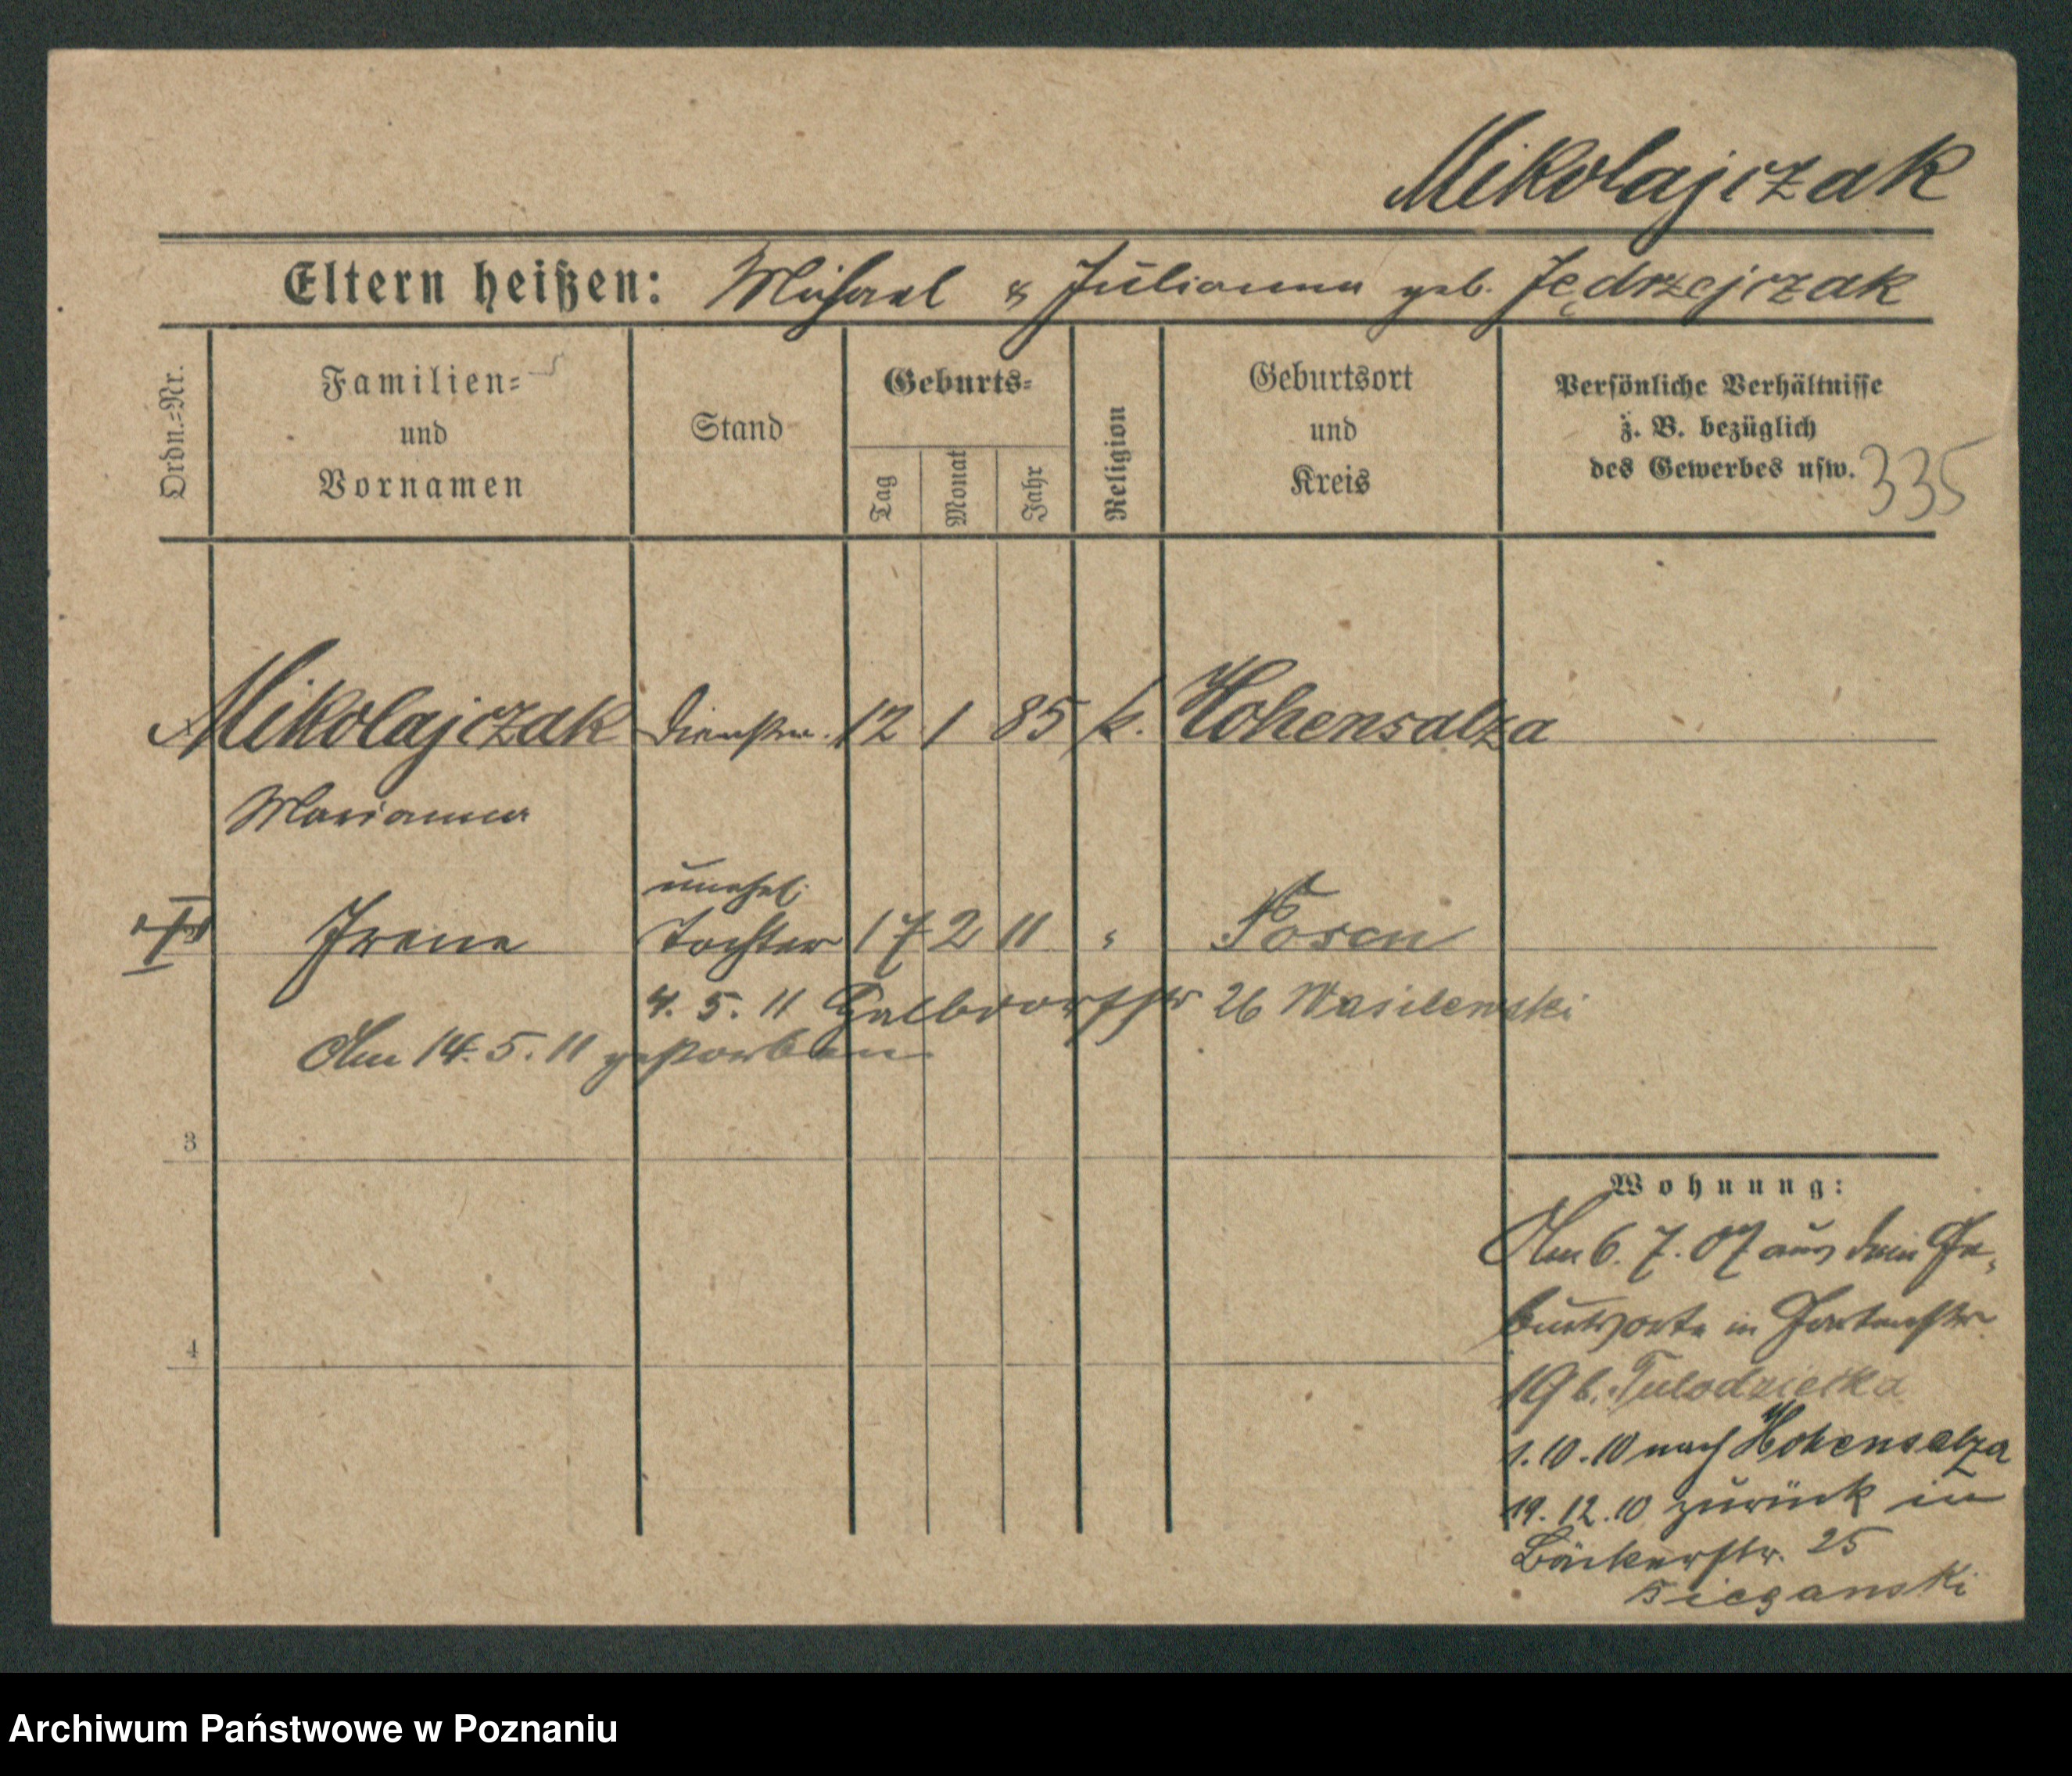 Mikolajczak
Eltern heißen: Michael & Julianna geb. Jędrzejczak
Ordn.=Nr.
Familien=
und
Vornamen
Stand
Geburts=
Tag
Monat
Jahr
Religion
Geburtsort
und
Kreis
Persönliche Verhältnisse
z. B. bezüglich
des Gewerbes usw.
335
Mikolajczak Dienstm. 12 1 85 k. Hohensalza
Marianna
unehel.
Irene Tochter 17 2 11 " Posen
4. 5. 11 26 Wasilewski
Am 14. 5. 11 gestorben
3
Wohnung:
Am 6. 7. 07 aus dem Ge-
burtsorte in Gartenstr
4
19 b. Tulodziecka
1. 10. 10 nach Hohensalza
19. 12. 10 zurück in
Bäckerstr. 25
Bieganski
Archiwum Państwowe w Poznaniu